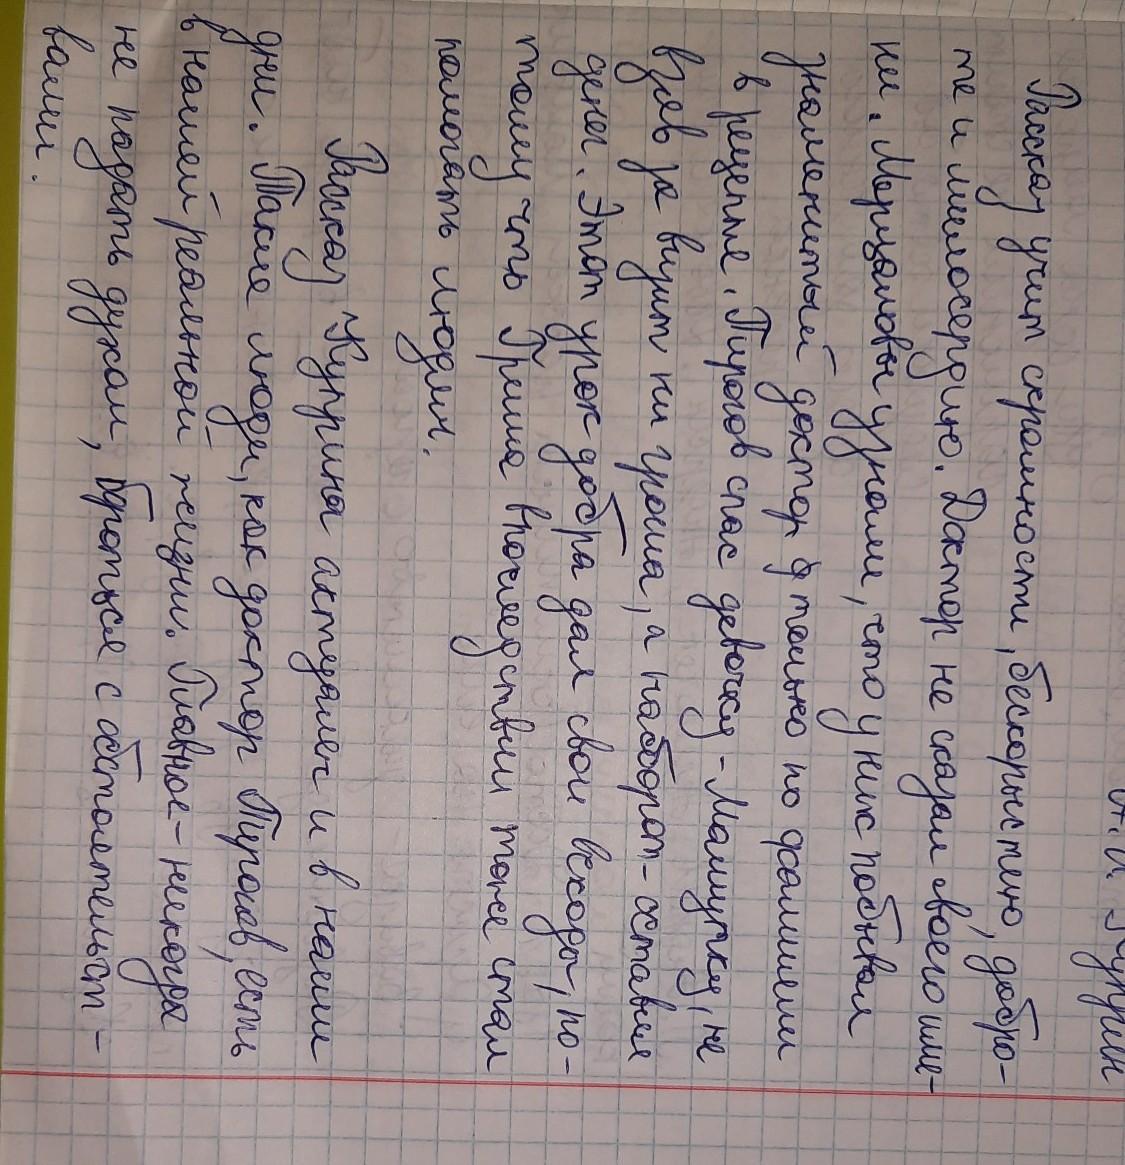 А. И. Куприн
Рассказ учит скромности, бескорыстию, добро-
те и милосердию. Доктор не сказал своего име-
ни. Мерцаловы узнали, что у них побывал
знаменитый доктор только по фамилии
в рецепте. Пирогов спас девочку - Машутку, не
взяв за визит ни гроша, а наоборот - оставил
денег. Этот урок добра дал свои всходы, по-
тому что Гриша впоследствии тоже стал
помогать людям.
Рассказ Куприна актуален и в наши
дни. Такие люди, как доктор Пирогов, есть
в нашей реальной жизни. Главное - никогда
не падать духом, бороться с обстоятельст-
вами.